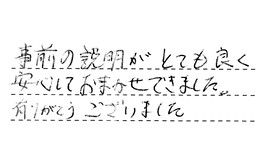 事前の説明がとても良く
安心しておまかせできました。
有りがとうございました